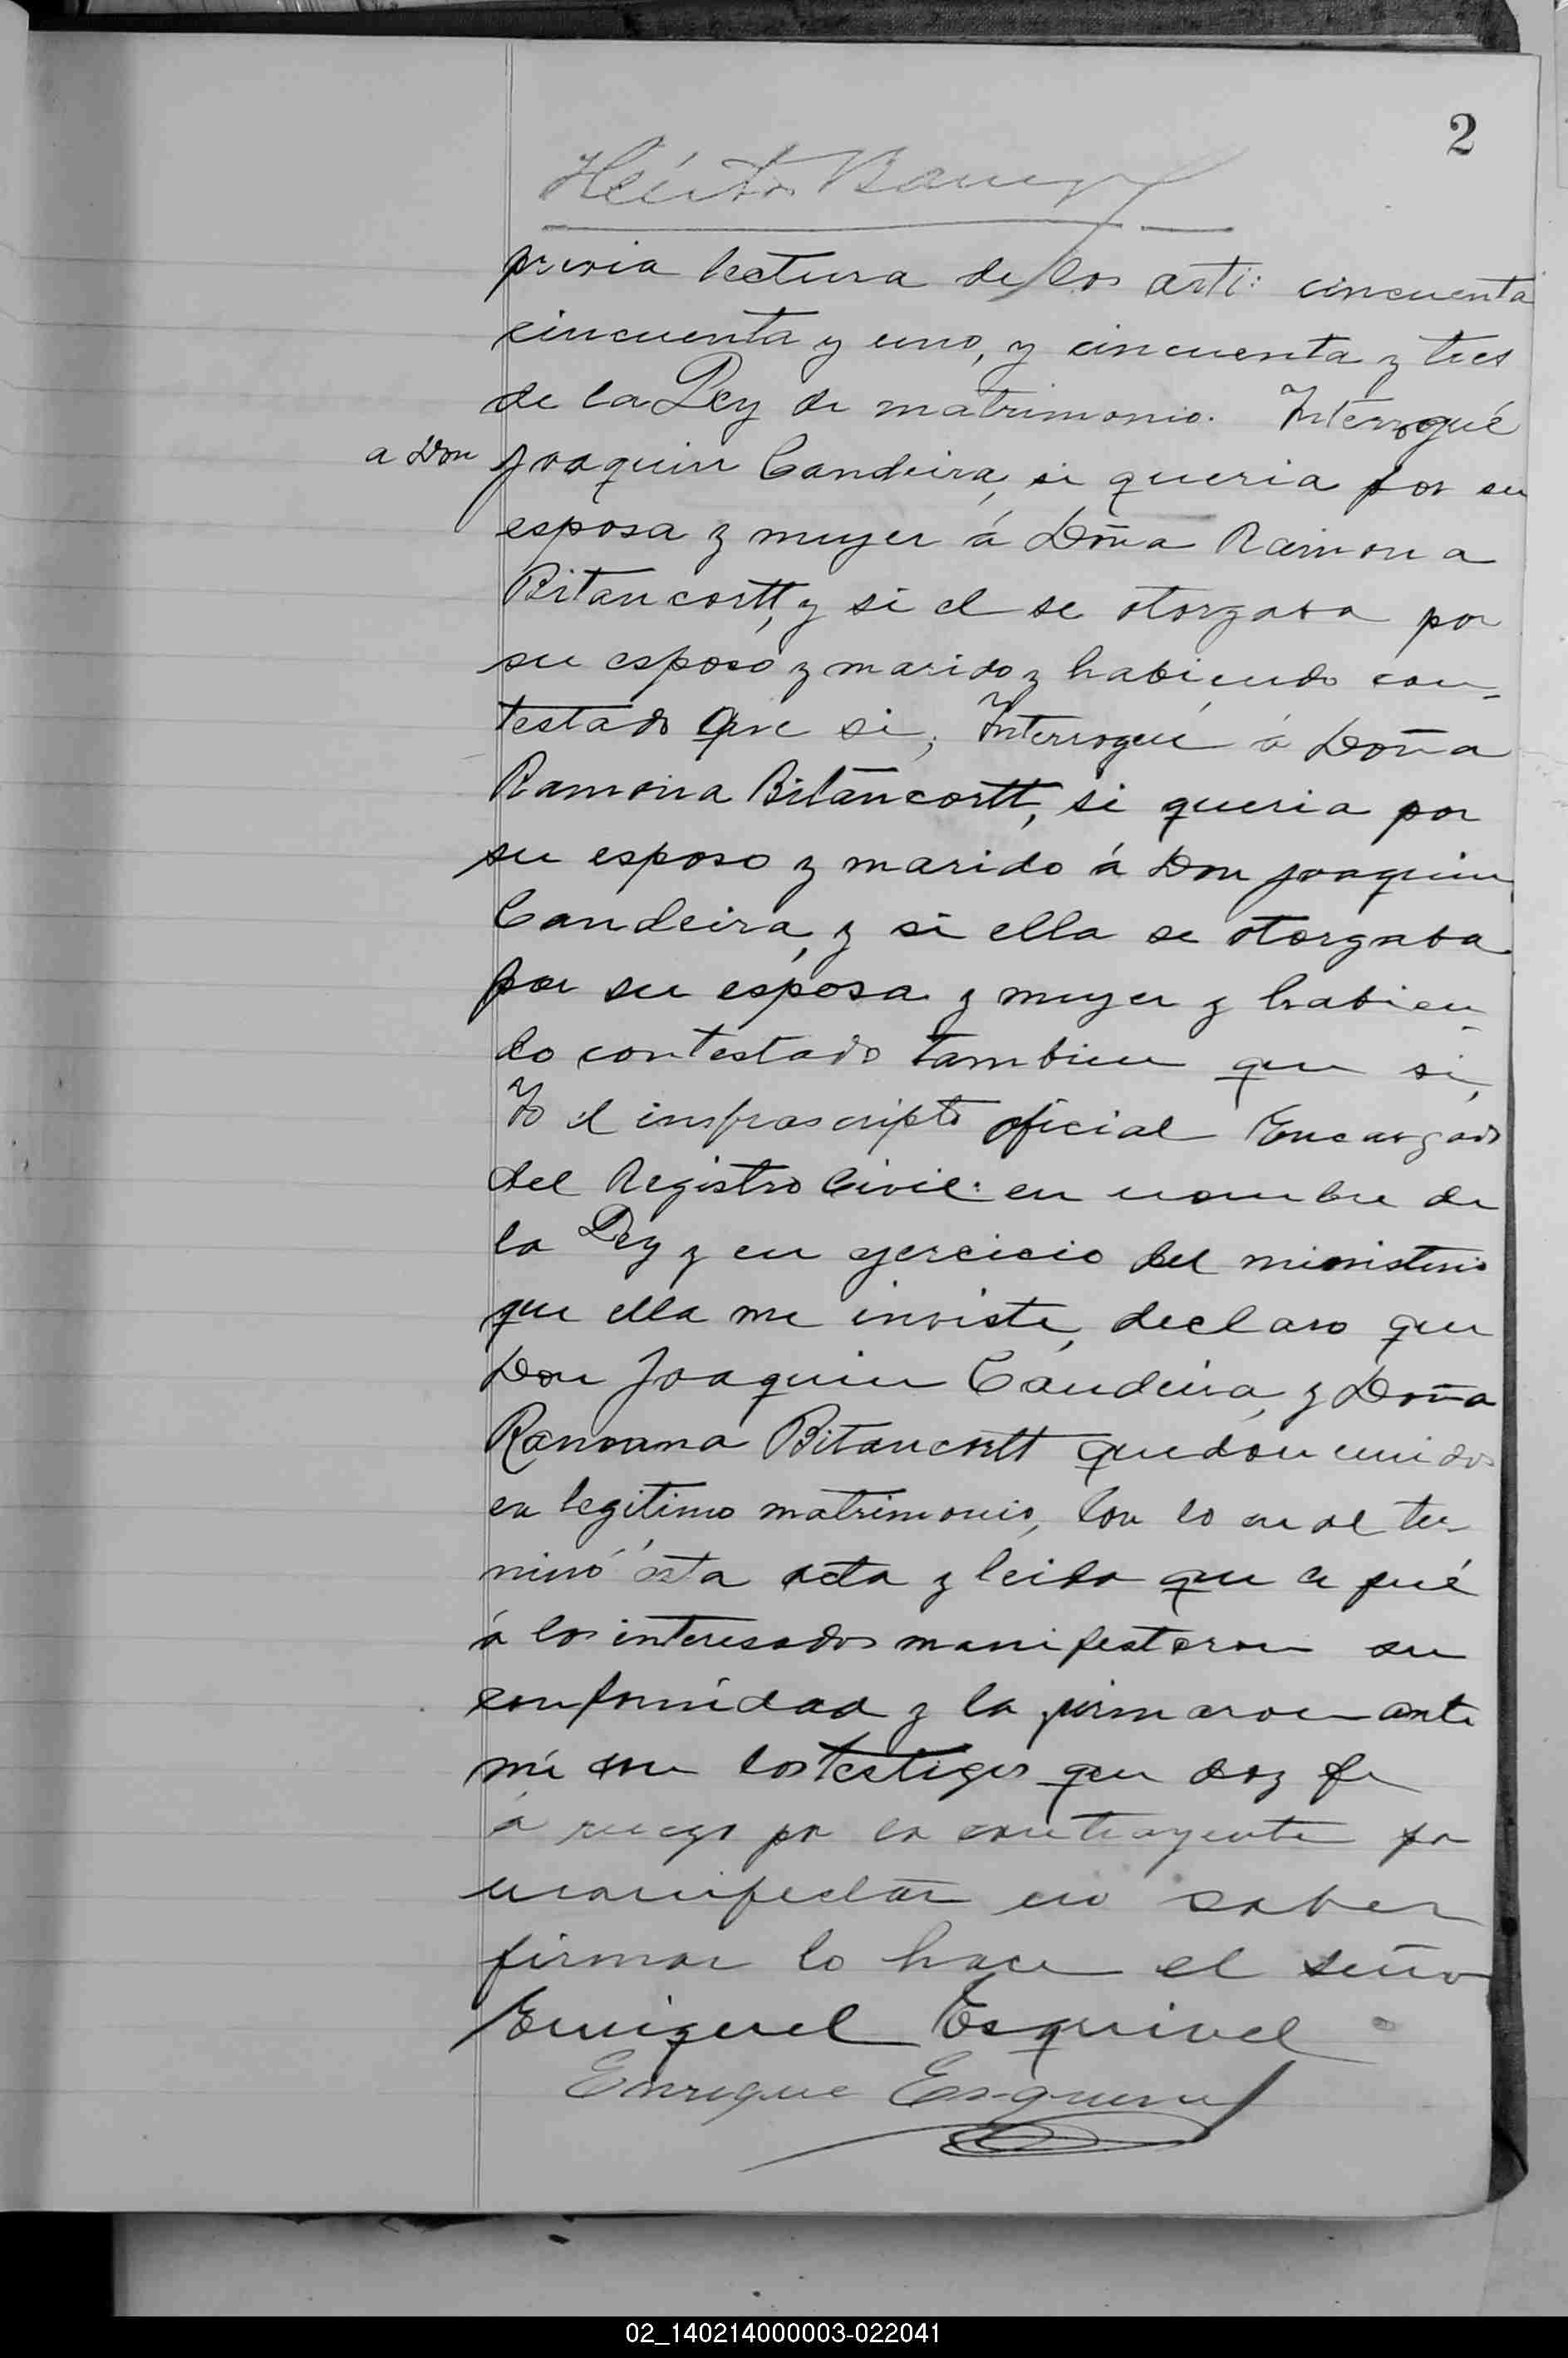 2
Héctor
previa lectura de los arti: cincuenta
cincuenta y uno, y cincuenta y tres
de la Ley de matrimonio. Interrogué
a Don Joaquin Candeira, si queria por su
esposa y mujer á Doña Ramona
Bitancortt, y si el se otorgaba por
su esposo y marido y habiendo con-
testado que si; Interrogué á Doña
Ramona Bitancortt, si queria por
su esposo y marido á Don Joaquin
Candeira, y si ella se otorgaba
por su esposa y mujer y habien-
do contestado tambien que si,
Yo el infrascripto oficial Encargado
del Registro Civil: en nombre de
la Ley y en ejercicio del ministerio
que ella me inviste, declaro que
Don Joaquin Candeira, y Doña
Ramona Bitancortt quedan unidos
en legitimo matrimonio, Con lo cual ter-
minó ésta acta y leida que le fué
á los interesados manifestaron su
conformidad y la firmaron ante
mi con los testigos que doy fe
á ruego por la contrayente por
manifestar no saber
firmar lo hace el señor
Esquivel
Enrique Esquivel
02_140214000003-022041